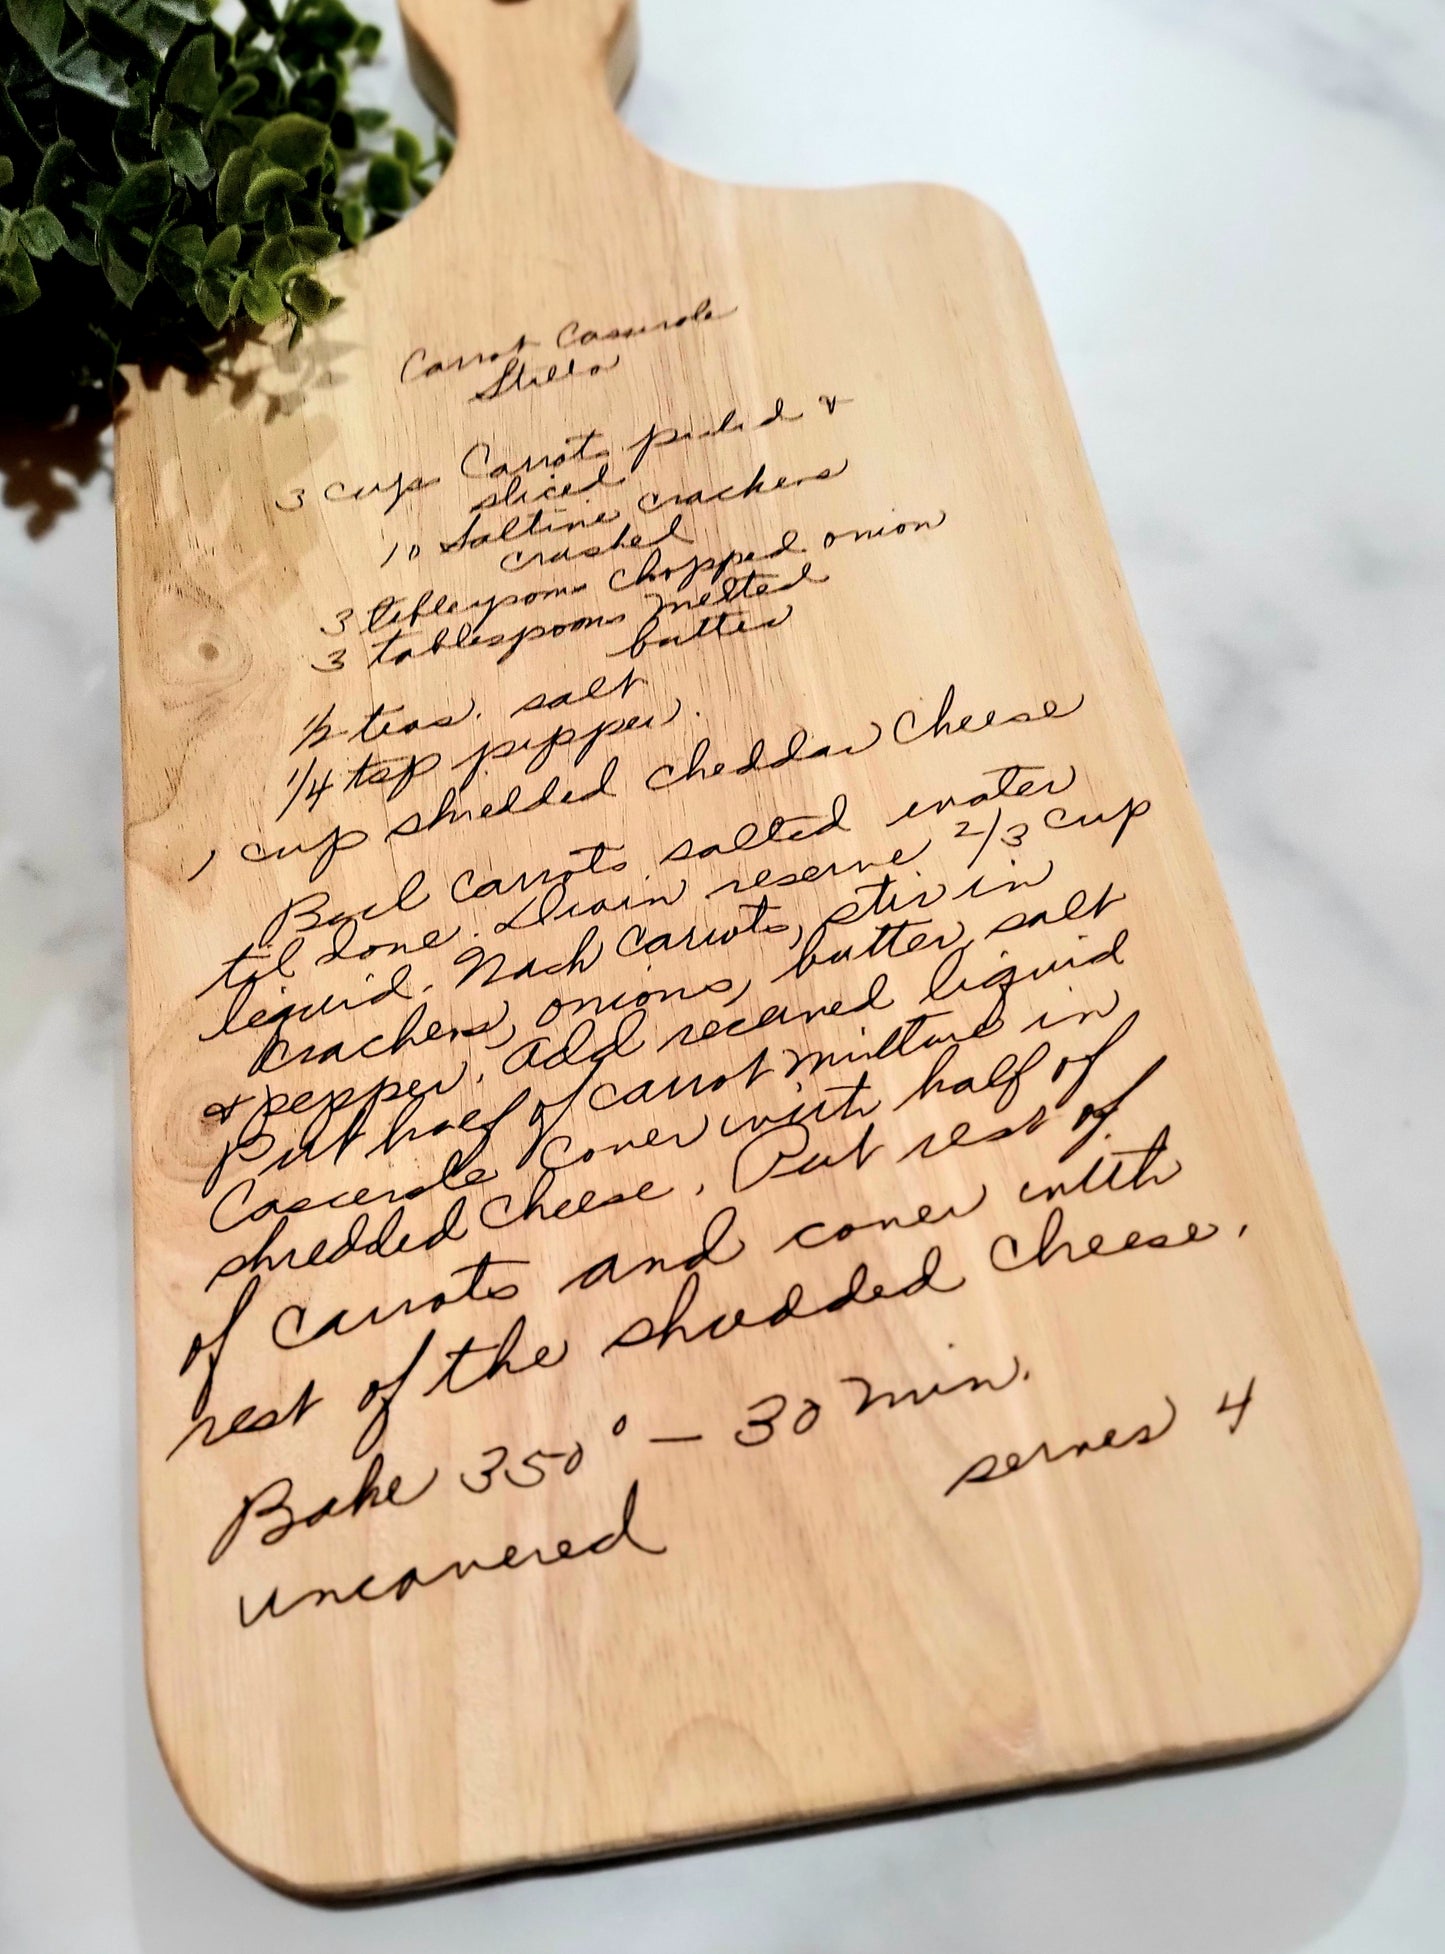 Carrot Casserole
Stella
3 cups Carrots peeled &
sliced
10 Saltine crackers
crushed
3 tablespoons chopped onion
3 tablespoons melted
butter
1/2 teas. salt
1/4 tsp pepper.
1 cup shredded cheddar cheese
Boil carrots salted water
til done. Drain reserve 2/3 cup
liquid. Mash carrots, stir in
crackers, onions, butter, salt
& pepper. Add reserved liquid
Put half of carrot mixture in
Casserole cover with half of
shredded cheese. Put rest of
of carrots and cover with
rest of the shredded cheese.
Bake 350° - 30 min.
uncovered serves 4